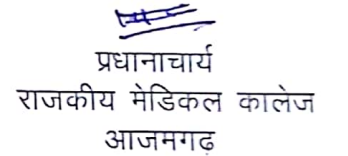 प्रधानाचार्य
राजकीय मेडिकल कालेज
आजमगढ़